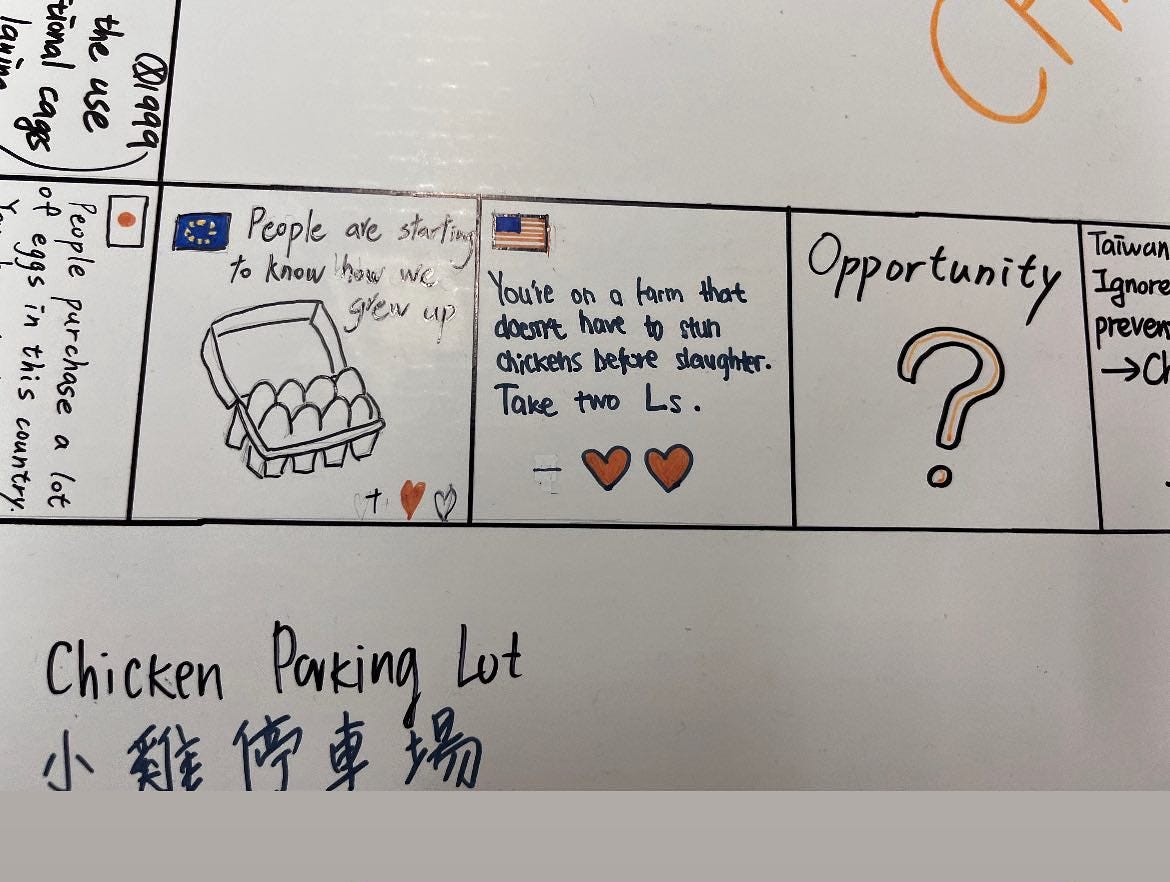 CH
⊗1999
the use
tional cages
laying
People purchase a lot
of eggs in this country.
People are starting
to know how we
grew up
+
You're on a farm that
doesn't have to stun
chickens before slaughter.
Take two Ls.
-
Opportunity
?
Taiwan
Ignore
preven
→Ch
Chicken Parking Lot
小雞停車場